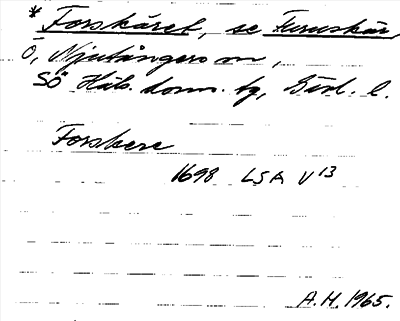 * Forskäret, se Furuskär,
Ö, Njutångers sn,
SÖ Häls. doms. tg, Gävl. l.
Forskere
1698 LSA V 13
A.H. 1965.